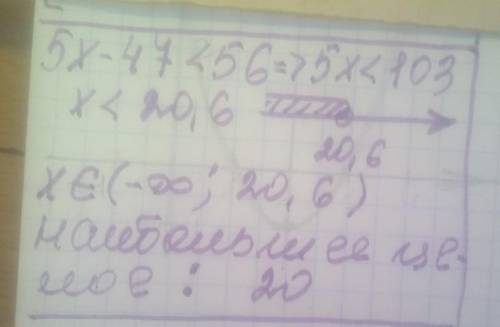 5x-47<56=>5x<103
x<20,6
20,6
x∈(-∞; 20,6)
наибольшее це-
лое: 20